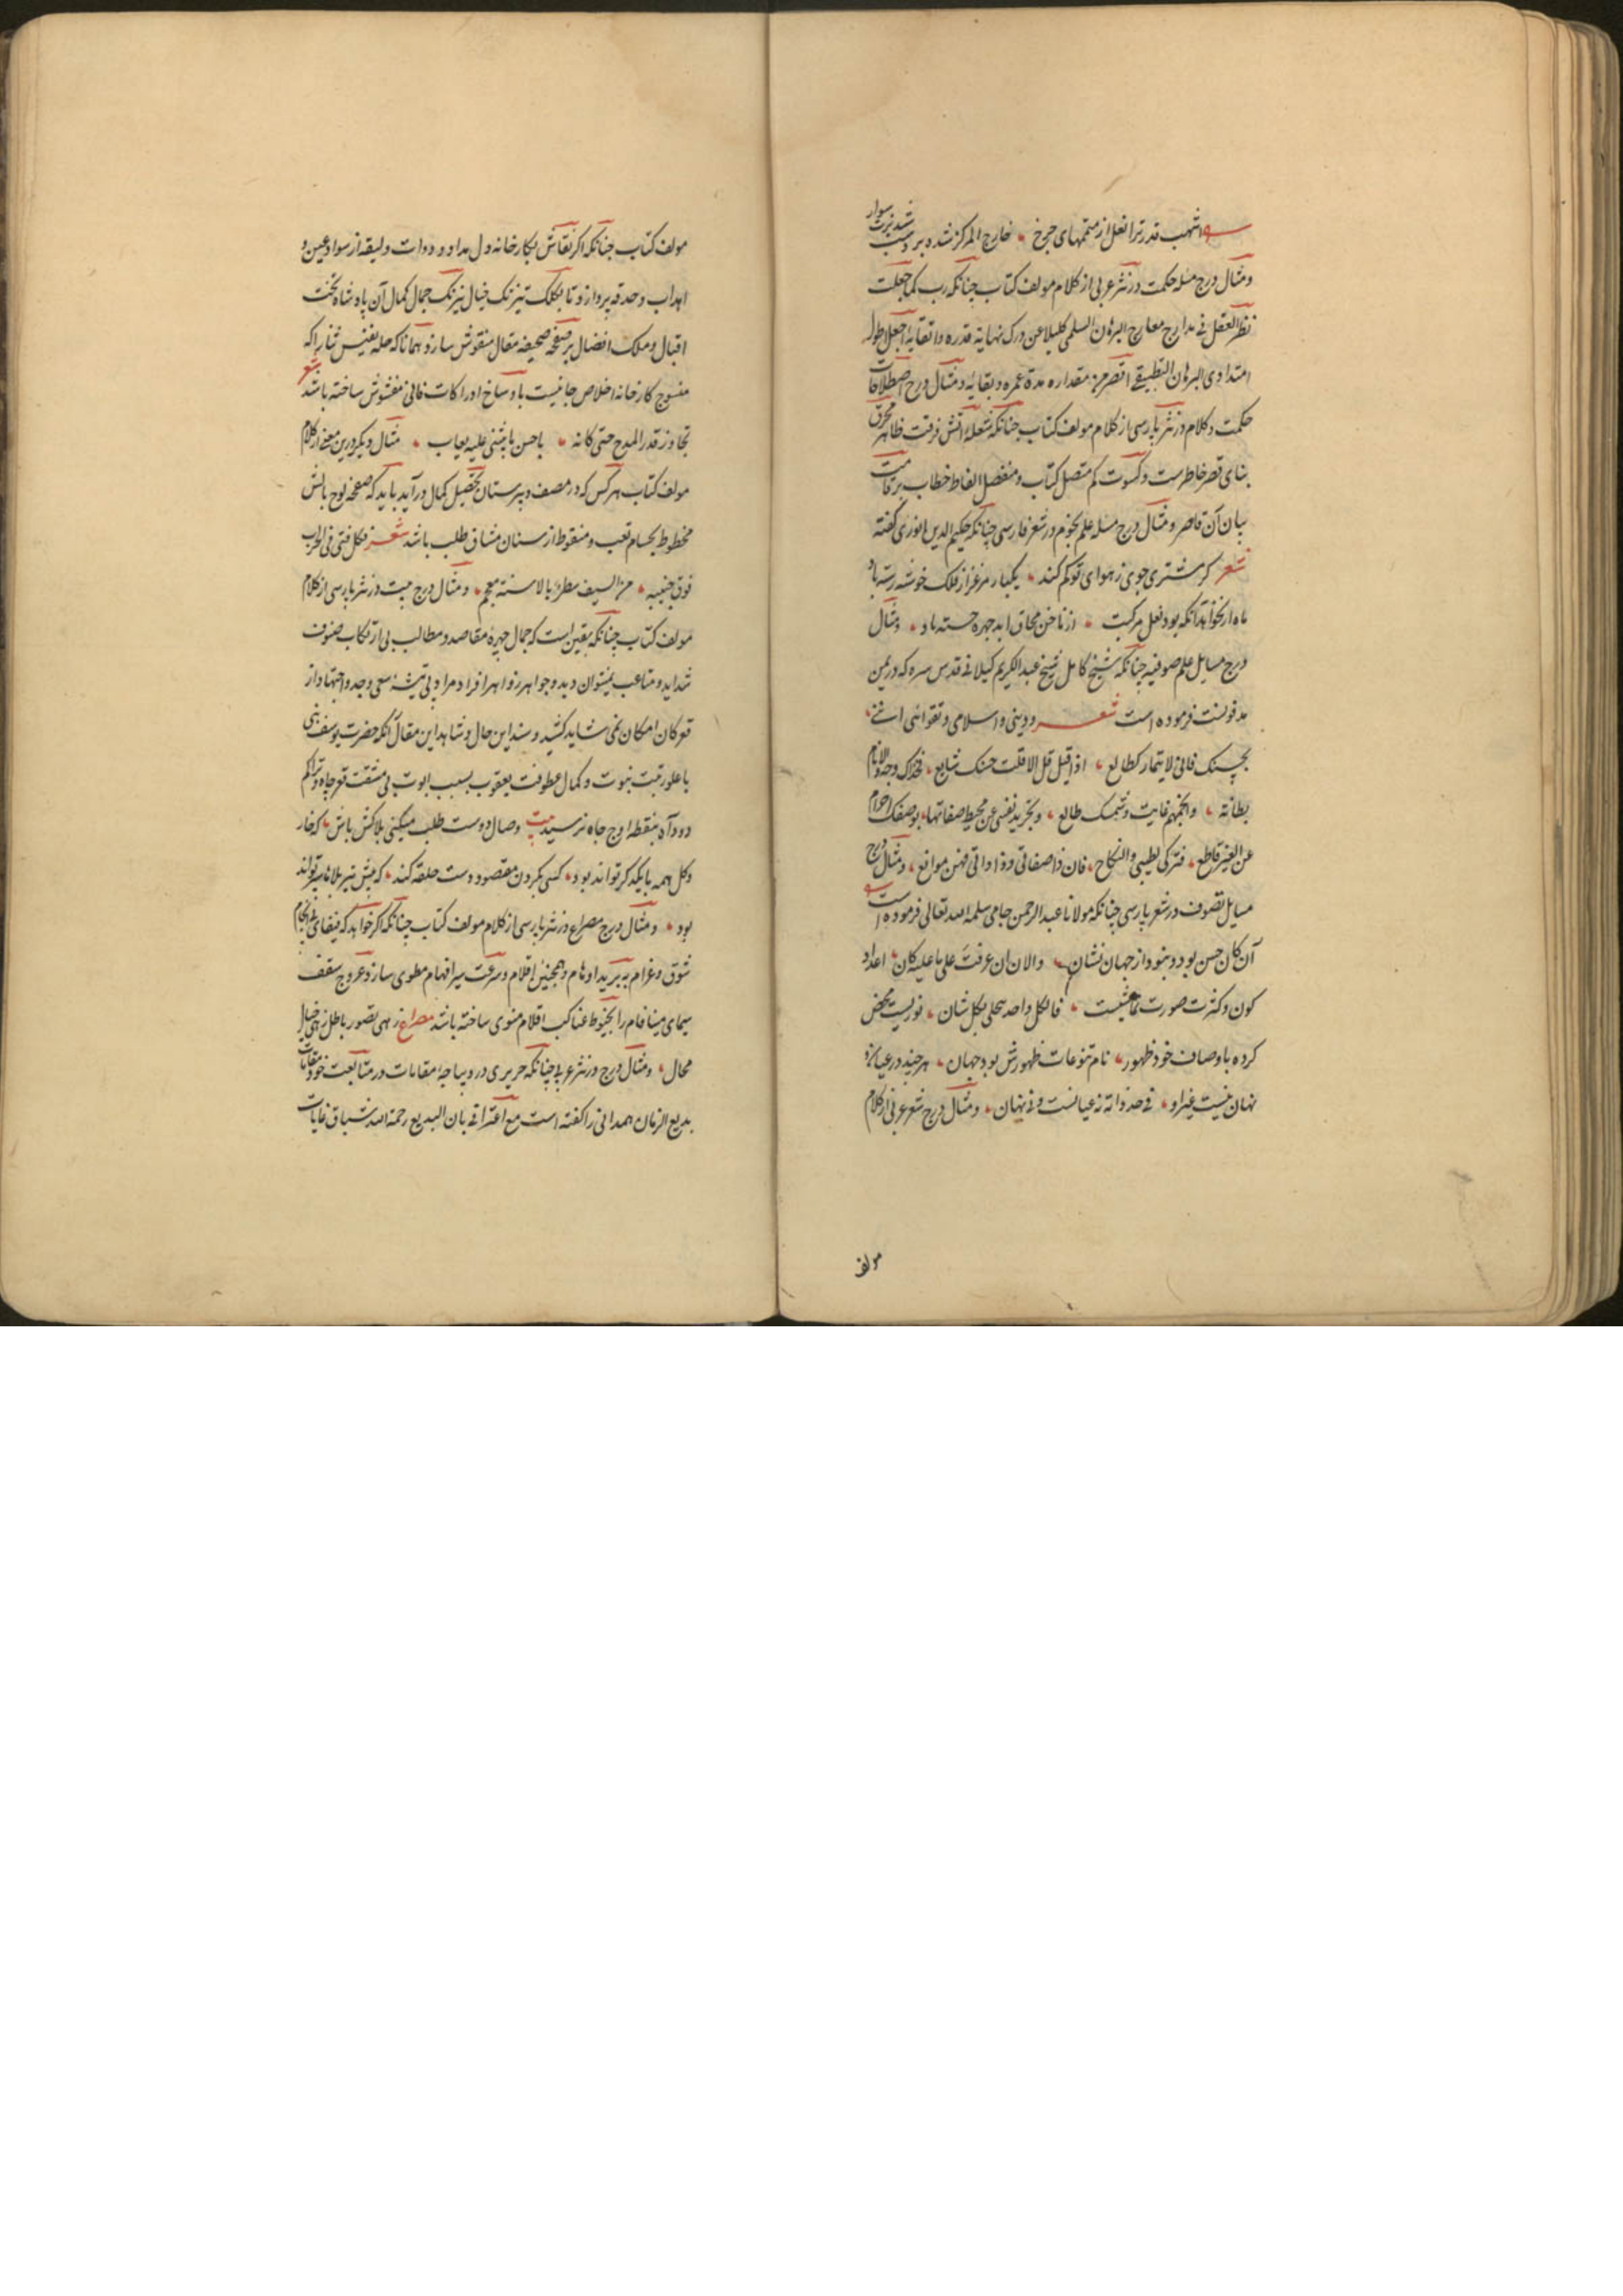 اشهب قدر ترا نعل از متممهای چرخ خارج المرکز شد و بر
ومثال درج مسله حکمت در نثر عربی از کلام مولف کتاب چنانکه رب کما جعلت
نظر العقل فی مدارج معارج البرهان السلمی کلیلا عن درک نهایة قدره واتقایه اجعل اطول
امتدادی البرهان التطبیقی اقصر من مقداره مدة عمره و بقائه ومثال درج اصطلاحات
حکمت و کلام در نثر پارسی از کلام مولف کتاب چنانکه شعلهٔ آتش فرقت ظاهر محرق
بنای قصر خاطرست و کسوت کم متصل کتاب و منفصل الفاظ خطاب بر قامت
بیان آن قاصر ومثال درج مسله علم نجوم در شعر فارسی چنانکه حکیم الدین انوری گفته
شعر کر مشتری جوی ز هوای تو کم کند یکباره مرغزار فلک خوشه رسته باد
ماه ار نخواهد آنکه بود نعل مرکبت از ناخن محاق ابد چهره خسته باد ومثال
درج مسایل علم صوفیه چنانکه شیخ کامل شیخ عبد الکریم کیلانی قدس سره که در یمن
مدفونست فرموده است شعر ودینی واسلامی وتقوائی اننی
بحسنک فانی لایتمار کطالع اذا قیل قل لا قلت حسنک شایع
بطانته وانجمهم غابت وشمسک طالع وتجرید نفسی عن محیط صفاتها بوصفک احرام
عن الغیر قاطع فترکی لطیبی والنکاح فان ذا صفاتی وذا ذاتی فهن موانع ومثال درج
مسایل تصوف در شعر پارسی چنانکه مولانا عبد الرحمن جامی سلمه الله تعالی فرموده است
آن کان حسن بود و نبود از جهان نشان والان ان عرفت علی ما علیه کان اعداد
کون و کثرت صورت نمایشیست فالکل واحد یتجلی بکل شان نوریست محض
کرده باوصاف خود ظهور نام تنوعات ظهورش بود جهان هر چند در عیان و
نهان نیست غیر او فی حد ذاته نه عیانست و نی نهان ومثال درج شعر عربی از کلام
مولف
مولف کتاب چنانکه اگر نقاش بکارخانه دل مداد و دوات و لیقه از سواد عین و
اهداب و حدقه پردازد تا بکلک تیزنک خیال نیرنک جمال کمال آن پادشاه تخت
اقبال و ملک افضال بر صفحه صحیفه مقال منقوش سازد همانا که حله نفیس ثنا را که
منسوج کارخانه اخلاص جانیست باوساخ ادراکات فانی مغشوش ساخته باشد شعر
تجاوز قدر المدح حتی کانه باحسن ما یثنی علیه یعاب مثال دیگر درین معنی از کلام
مولف کتاب هر کس که در مصف دبیرستان تحصیل کمال در آید باید که صفحه لوح بالش
مخطوط بحسام تعب و منقوط از سنان مشاق طلب باشد شعر فکل فتی فی الحرب
فوق جبینه من السیف سطر بالاسنة معجم ومثال درج بیت در نثر پارسی از کلام
مولف کتاب چنانکه یقین است که جمال چهرهٔ مقاصد و مطالب بی ارتکاب صنوف
شداید و متاعب نمیتوان دید و جواهر زواهر افراد مراد بی تیشهٔ سعی و جد و اجتهاد از
قعر کان امکان نمی شاید کشید و سند این حال و شاهد این مقال آنکه حضرت یوسف نبی
با علو رتبت نبوت و کمال عطوفت یعقوب بسبب ابوت بی مشقت قعر چاه و تراکم
دود آه بنقطه اوج جاه نرسید بیت وصال دوست طلب میکنی بلاکش باش که خار
و کل همه با یکدکر تواند بود کسی بکردن مقصود دست حلقه کند که پیش تیر بلاها سپر تواند
بود ومثال درج مصراع در نثر پارسی از کلام مولف کتاب چنانکه اگر خواهد که
شوق و غرام به برید اوهام و همچنین اقلام و سرعت سیر افهام مطوی سازد عروج سقف
سیمای مینا فام را بخیوط عناکب اقلام منوی ساخته باشد مصراع زهی تصور باطل زهی خیال
محال ومثال درج در نثر عربی چنانکه حریری در دیباچه مقامات در متابعت خود مقامات
بدیع الزمان همدانی را گفته است مع اعترافی بان البدیع رحمه الله سباق غایات